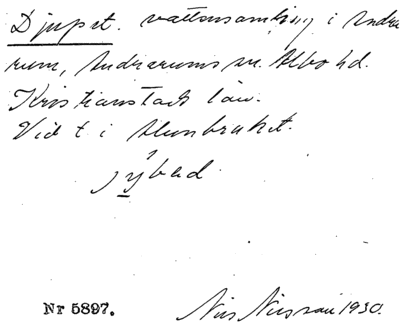 Djupet. vattensamling i Andra
rum, Andrarums sn. Albo hd.
Kristianstads län.
Vid t. i Alunbruket.
jỳbad
Nr 5897.
Nils Nilsson 1930.